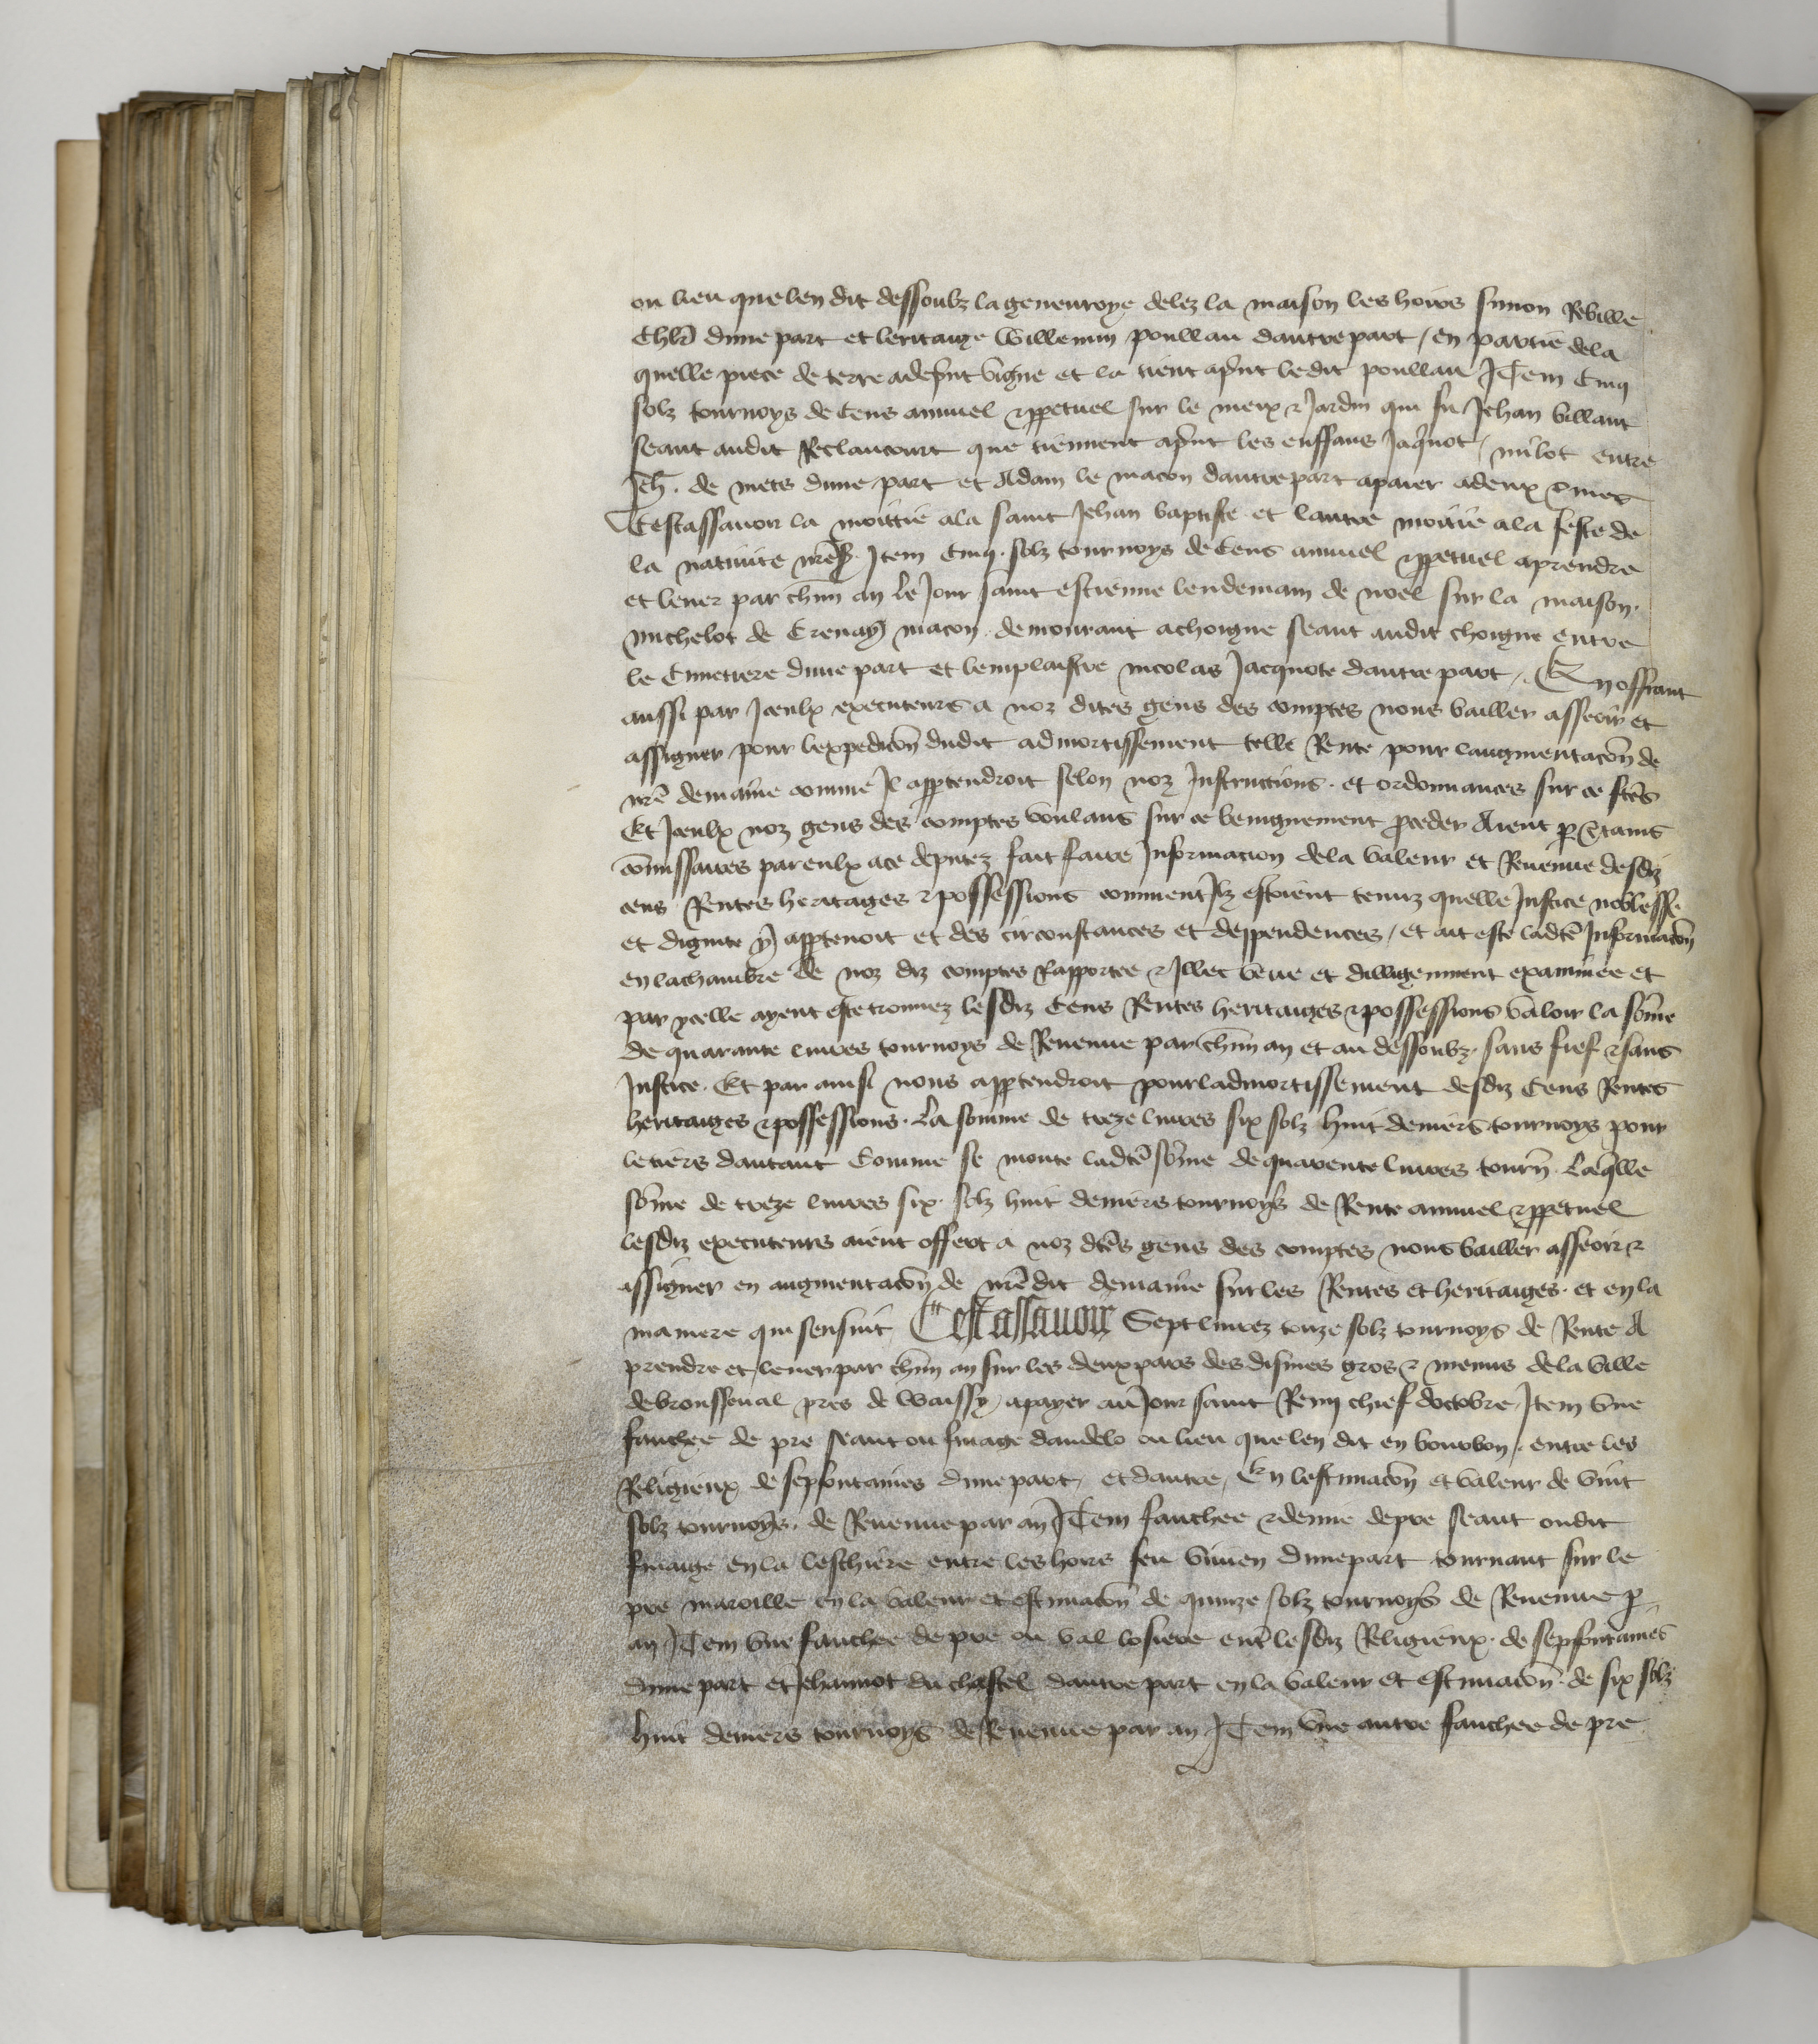 ou lieu que len dit dessoubz la geneuroye delez la maison les hoirs simon
Chlr̄ dune part et leritaige Willemin poullan dautre part / en partie dela
quelle piece de terre a de pn̄t vigne et la tient apn̄t ledit poullan Item Cinq
solz tournoys de Cens annuel ⁊ ppetuel sur le meix ⁊ Jardin qui fu Jehan billaut
seant audit Reclancourt que tiennent apn̄t les enffans Jaquot / milot entre
Jeh̄. de mets dune part et Adam le macon dautre part apaier a deux tmes
Cestassauoir la moittie ala saint Jehan baptiste et lautre moitie ala feste de
la natiuite nr̄e s. Item Cinq solz tournoys de Cens annuel ⁊ ppetuel aprendre
et leuer par chūn an le Jour saint estienne lendemain de noel sur la maison.
michelot de Crenay macon demourant achoigne seant audit choigne entre
le Cimetiere dune part et lemplaistre nicolas Jacquote dautre part / En offrant
aussi par Iceulx executeurs a noz dites gens des comptes nous bailler asseoir et
assigner pour lexpedicōn dudit admortissement telle Rente pour laugmentacōn de
nr̄e demaine comme Il apptendroit selon noz Instructions. et ordonnances sur ce fc̄es
Et Iceulx noz gens des comptes voulans sur ce benignement pceder Aient p ctains
cōmissaires par eulx ace deputez fait faire Informacion dela valeur et Reuenue desdiz
cens Rentes heritages ⁊ possessions comment Ilz estoient tenuz quelle Justice noblesse
et dignite y apptenoit et des circonstances et deppendences / et ait este ladtē Informacōn
en lachambre de noz diz comptes Rapportee ⁊ Illec veue et dilligenment examinee et
par ycelle ayent este trouuez lesdiz Cens Rentes heritaiges ⁊ possessions valoir la sōme
de quarante liures tournoys de Reuenue par chūn an et au dessoubz. sans fief ⁊ sans
Justice. Et par ainsi nous apptendroit pour ladmortissement desdiz Cens Rentes
heritaiges ⁊ possessions. La somme de treze liures six solz huit deniers tournoys pour
le tiers dautant Comme se monte ladtē sōme de quarente liures tourn̄. Laq̄lle
sōme de treze liures six solz huit deniers tournoys de Rente annuel ⁊ ppetuel
lesdiz executeurs aient offert a noz dtēs gens des comptes nous bailler asseoir ⁊
assigner en augmentacōn de nr̄edit demaine sur les Rentes et heritaiges. et en la
maniere qui sensuit Cestassauoir Sept liurez onze solz tournoys de Rente A
prendre et leuer par chūn an sur les deux pars des dismes gros ⁊ menus dela ville
de broussenal pres de Waissy / apayer au Jour saint Remy chief doctobre / Item vne
fauchee de pre seant ou finage dandelo ou lieu que len dit en bourbon / entre les
Religieux de sepfontaines dune part / et dautre / En lestimacōn et valeur de vint
solz tournoys. de Reuenue par an Item fauchee ⁊ demie depre seant oudit
finaige en la leschiere entre les hoirs feu viuien dune part tournant sur le
pre maroille en la valeur et estimacōn de quinze solz tournoys de Reuenue p
an Item vne fauchee de pre ou val losiere ent̄ lesdiz Religieux. de sepfontaines
dune part et Jehannot du chastel dautre part en la valeur et estimacōn de six solz
huit deniers tournoys de Reuenue par an Item vne autre fauchee de pre